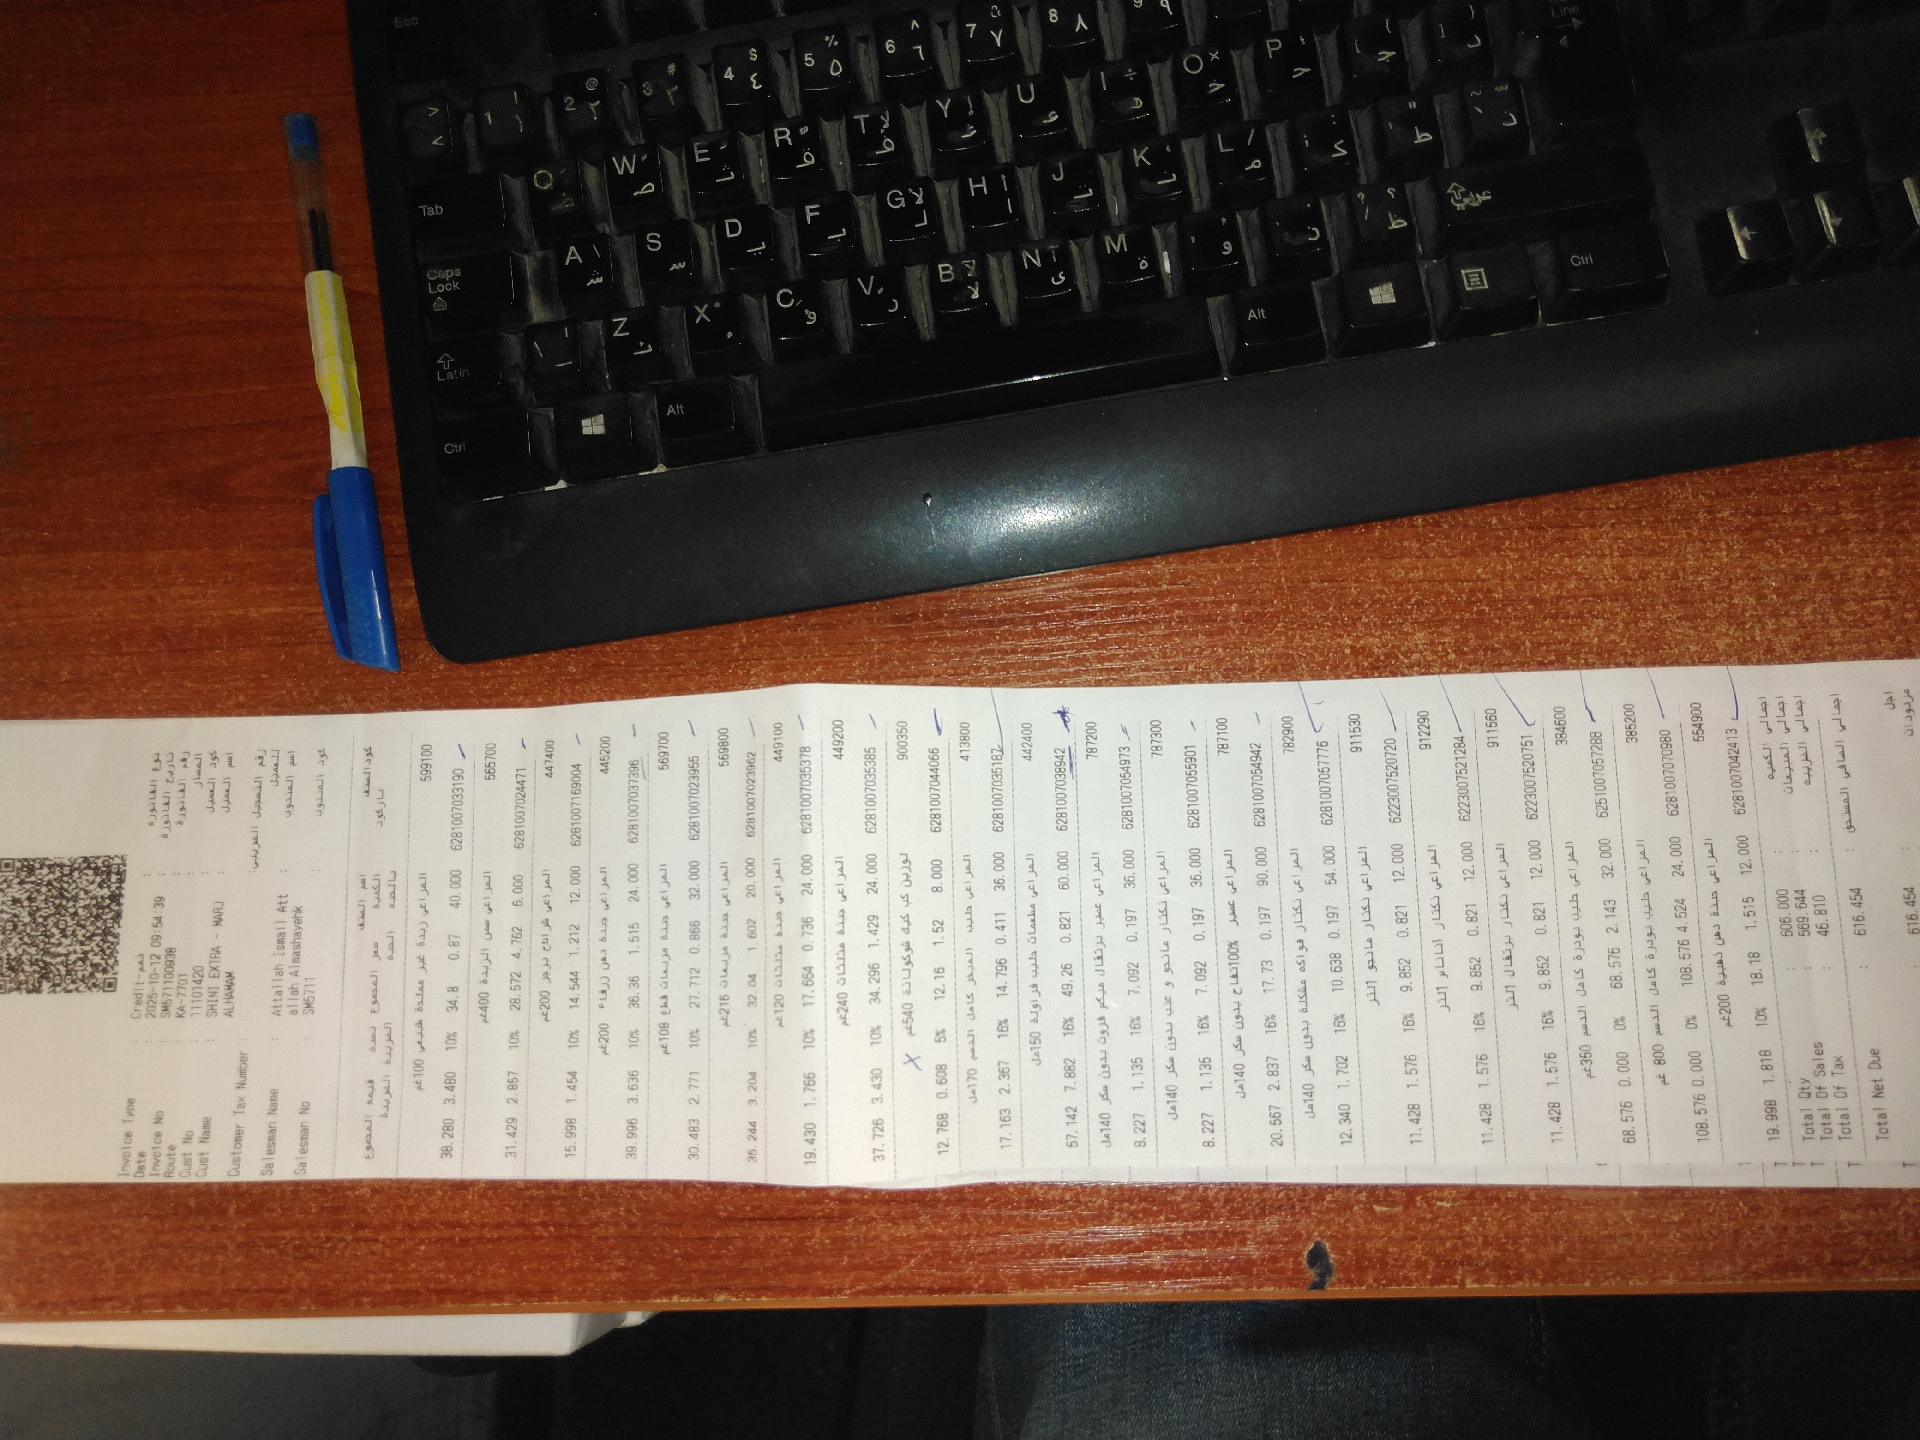 Invoice Type : Credit-ذمم : نوع الفاتورة
Date : 2025-10-12 09:54:39 : تاريخ الفاتورة
Invoice No : SM571100938 : رقم الفاتورة
Route : KA-7701 : المسار
Cust No : 11101420 : كود العميل
Cust Name : SHINI EXTRA - MARJ ALHAMAM : اسم العميل
Customer Tax Number : : رقم التسجيل الضريبي للعميل
Salesman Name : Attallah Ismail Att allah Almashayehk : اسم المندوب
Salesman No : SM5711 : كود المندوب
المجموع قيمة الضريبة نسبة الضريبة المجموع سعر الحبة الكمية بالحبة اسم الصنف باركود كود الصنف
المراعي زبدة غير مملحة طبيعي 100غم 599100
38.280 3.480 10% 34.8 0.87 40.000 6281007033190
المراعي سمن الزبدة 400غم 565700
31.429 2.857 10% 28.572 4.762 6.000 6281007024471
المراعي شرائح برجر 200غم 447400
15.998 1.454 10% 14.544 1.212 12.000 6281007169004
المراعي جبنة دهن زرقاء 200غم 445200
39.996 3.636 10% 36.36 1.515 24.000 6281007037396
المراعي جبنة مربعات قطع 108غم 569700
30.483 2.771 10% 27.712 0.866 32.000 6281007023955
المراعي جبنة مربعات 216غم 569800
35.244 3.204 10% 32.04 1.602 20.000 6281007023962
المراعي جبنة مثلثات 120غم 449100
19.430 1.766 10% 17.664 0.736 24.000 6281007035378
المراعي جبنة مثلثات 240غم 449200
37.726 3.430 10% 34.296 1.429 24.000 6281007035385
لوزين كب كيك شوكولاتة 540غم 900350
12.768 0.608 5% 12.16 1.52 8.000 6281007044066
المراعي حليب المبخر كامل الدسم 170مل 413800
17.163 2.367 16% 14.796 0.411 36.000 6281007035187
المراعي مطعمات حليب فراولة 150مل 442400
57.142 7.882 16% 49.26 0.821 60.000 6281007038942
المراعي عصير برتقال مركز فروت بدون سكر 140مل 787200
8.227 1.135 16% 7.092 0.197 36.000 6281007054973
المراعي نكتار مانجو و عنب بدون سكر 140مل 787300
8.227 1.135 16% 7.092 0.197 36.000 6281007055901
المراعي عصير 100%تفاح بدون سكر 140مل 787100
20.567 2.837 16% 17.73 0.197 90.000 6281007054942
المراعي نكتار فواكه مشكلة بدون سكر 140مل 782900
12.340 1.702 16% 10.638 0.197 54.000 6281007057776
المراعي نكتار مانجو التر 911530
11.428 1.576 16% 9.852 0.821 12.000 6223007520720
المراعي نكتار اناناس التر 912290
11.428 1.576 16% 9.852 0.821 12.000 6223007521284
المراعي نكتار برتقال التر 911560
11.428 1.576 16% 9.852 0.821 12.000 6223007520751
المراعي حليب بودرة كامل الدسم 350غم 384600
68.576 0.000 0% 68.576 2.143 32.000 6251007057288
المراعي حليب بودرة كامل الدسم 800 غم 385200
108.576 0.000 0% 108.576 4.524 24.000 6281007070980
المراعي جبنة دهن ذهبية 200غم 554900
19.998 1.818 10% 18.18 1.515 12.000 6281007042413
Total Qty : 606.000 اجمالي الكمية
Total Of Sales : 569.644 اجمالي المبيعات
Total Of Tax : 46.810 اجمالي الضريبة
Total Net Due : 616.454 : اجمالي الصافي المستحق
616.454 اجل
مردودات
Esc
1 2 3 4 5 6 7 8 9
Tab Q W E R T Y U I O P
Caps Lock A S D F G H J K L
Latin Z X C V B N M
Ctrl Alt Alt Ctrl